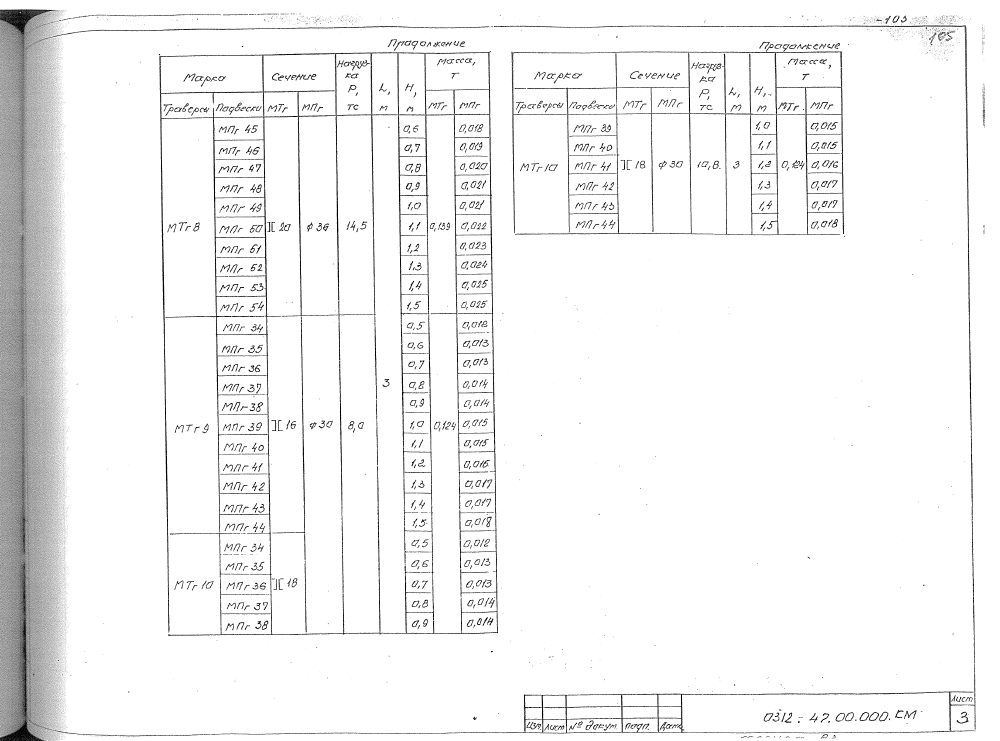 -103
105
Продолжение
Марка Сечение Нагрузка P, тс L, м H, м Масса, т
Траверсы Подвески МТг МПг МТг МПг
МПг 45 0,6 0,018
МПг 46 0,7 0,019
МПг 47 0,8 0,020
МПг 48 0,9 0,021
МПг 49 1,0 0,021
МТг 8 МПг 50 ][ 20 ф 36 14,5 1,1 0,139 0,022
МПг 51 1,2 0,023
МПг 52 1,3 0,024
МПг 53 1,4 0,025
МПг 54 1,5 0,025
МПг 34 0,5 0,012
МПг 35 0,6 0,013
МПг 36 0,7 0,013
МПг 37 3 0,8 0,014
МПг 38 0,9 0,014
МТг 9 МПг 39 ][ 16 ф 30 8,0 1,0 0,124 0,015
МПг 40 1,1 0,015
МПг 41 1,2 0,016
МПг 42 1,3 0,017
МПг 43 1,4 0,017
МПг 44 1,5 0,018
МПг 34 0,5 0,012
МПг 35 0,6 0,013
МТг 10 МПг 36 ][ 18 0,7 0,013
МПг 37 0,8 0,014
МПг 38 0,9 0,014
Продолжение
Марка Сечение Нагрузка P, тс L, м H, м Масса, т
Траверсы Подвески МТг МПг МТг МПг
МПг 39 1,0 0,015
МПг 40 1,1 0,015
МТг 10 МПг 41 ][ 18 ф 30 10,8 3 1,2 0,124 0,016
МПг 42 1,3 0,017
МПг 43 1,4 0,017
МПг 44 1,5 0,018
Изм Лист № докум. Подп. Дата
0312-47.00.000.СМ
Лист
3